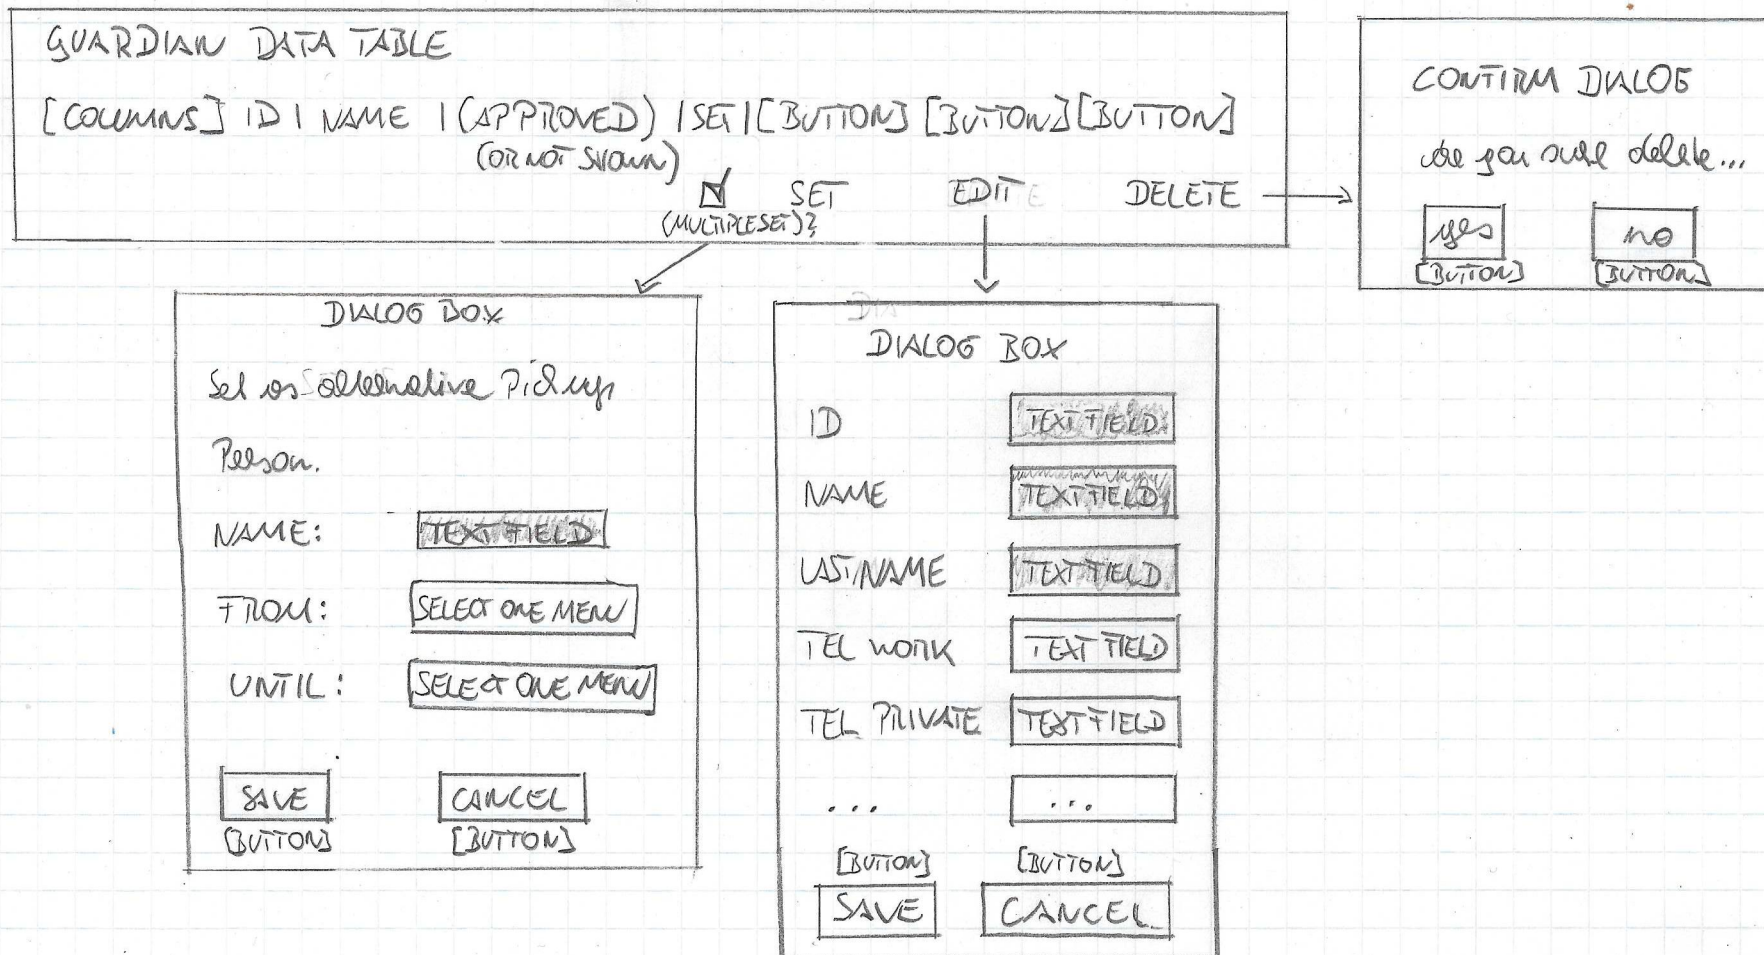 GUARDIAN DATA TABLE
[COLUMNS] ID | NAME | (APPROVED) | SET | [BUTTON] [BUTTON] [BUTTON]
(OR NOT SHOWN)
SET EDIT DELETE
(MULTIPLE SET)?
CONFIRM DIALOG
Are you sure delete...
yes no
[BUTTON] [BUTTON]
DIALOG BOX
Set as alternative Pickup
Person.
NAME: TEXT FIELD
FROM: SELECT ONE MENU
UNTIL: SELECT ONE MENU
SAVE CANCEL
[BUTTON] [BUTTON]
DIALOG BOX
ID TEXT FIELD
NAME TEXT FIELD
LASTNAME TEXT FIELD
TEL WORK TEXT FIELD
TEL PRIVATE TEXT FIELD
... ...
[BUTTON] [BUTTON]
SAVE CANCEL